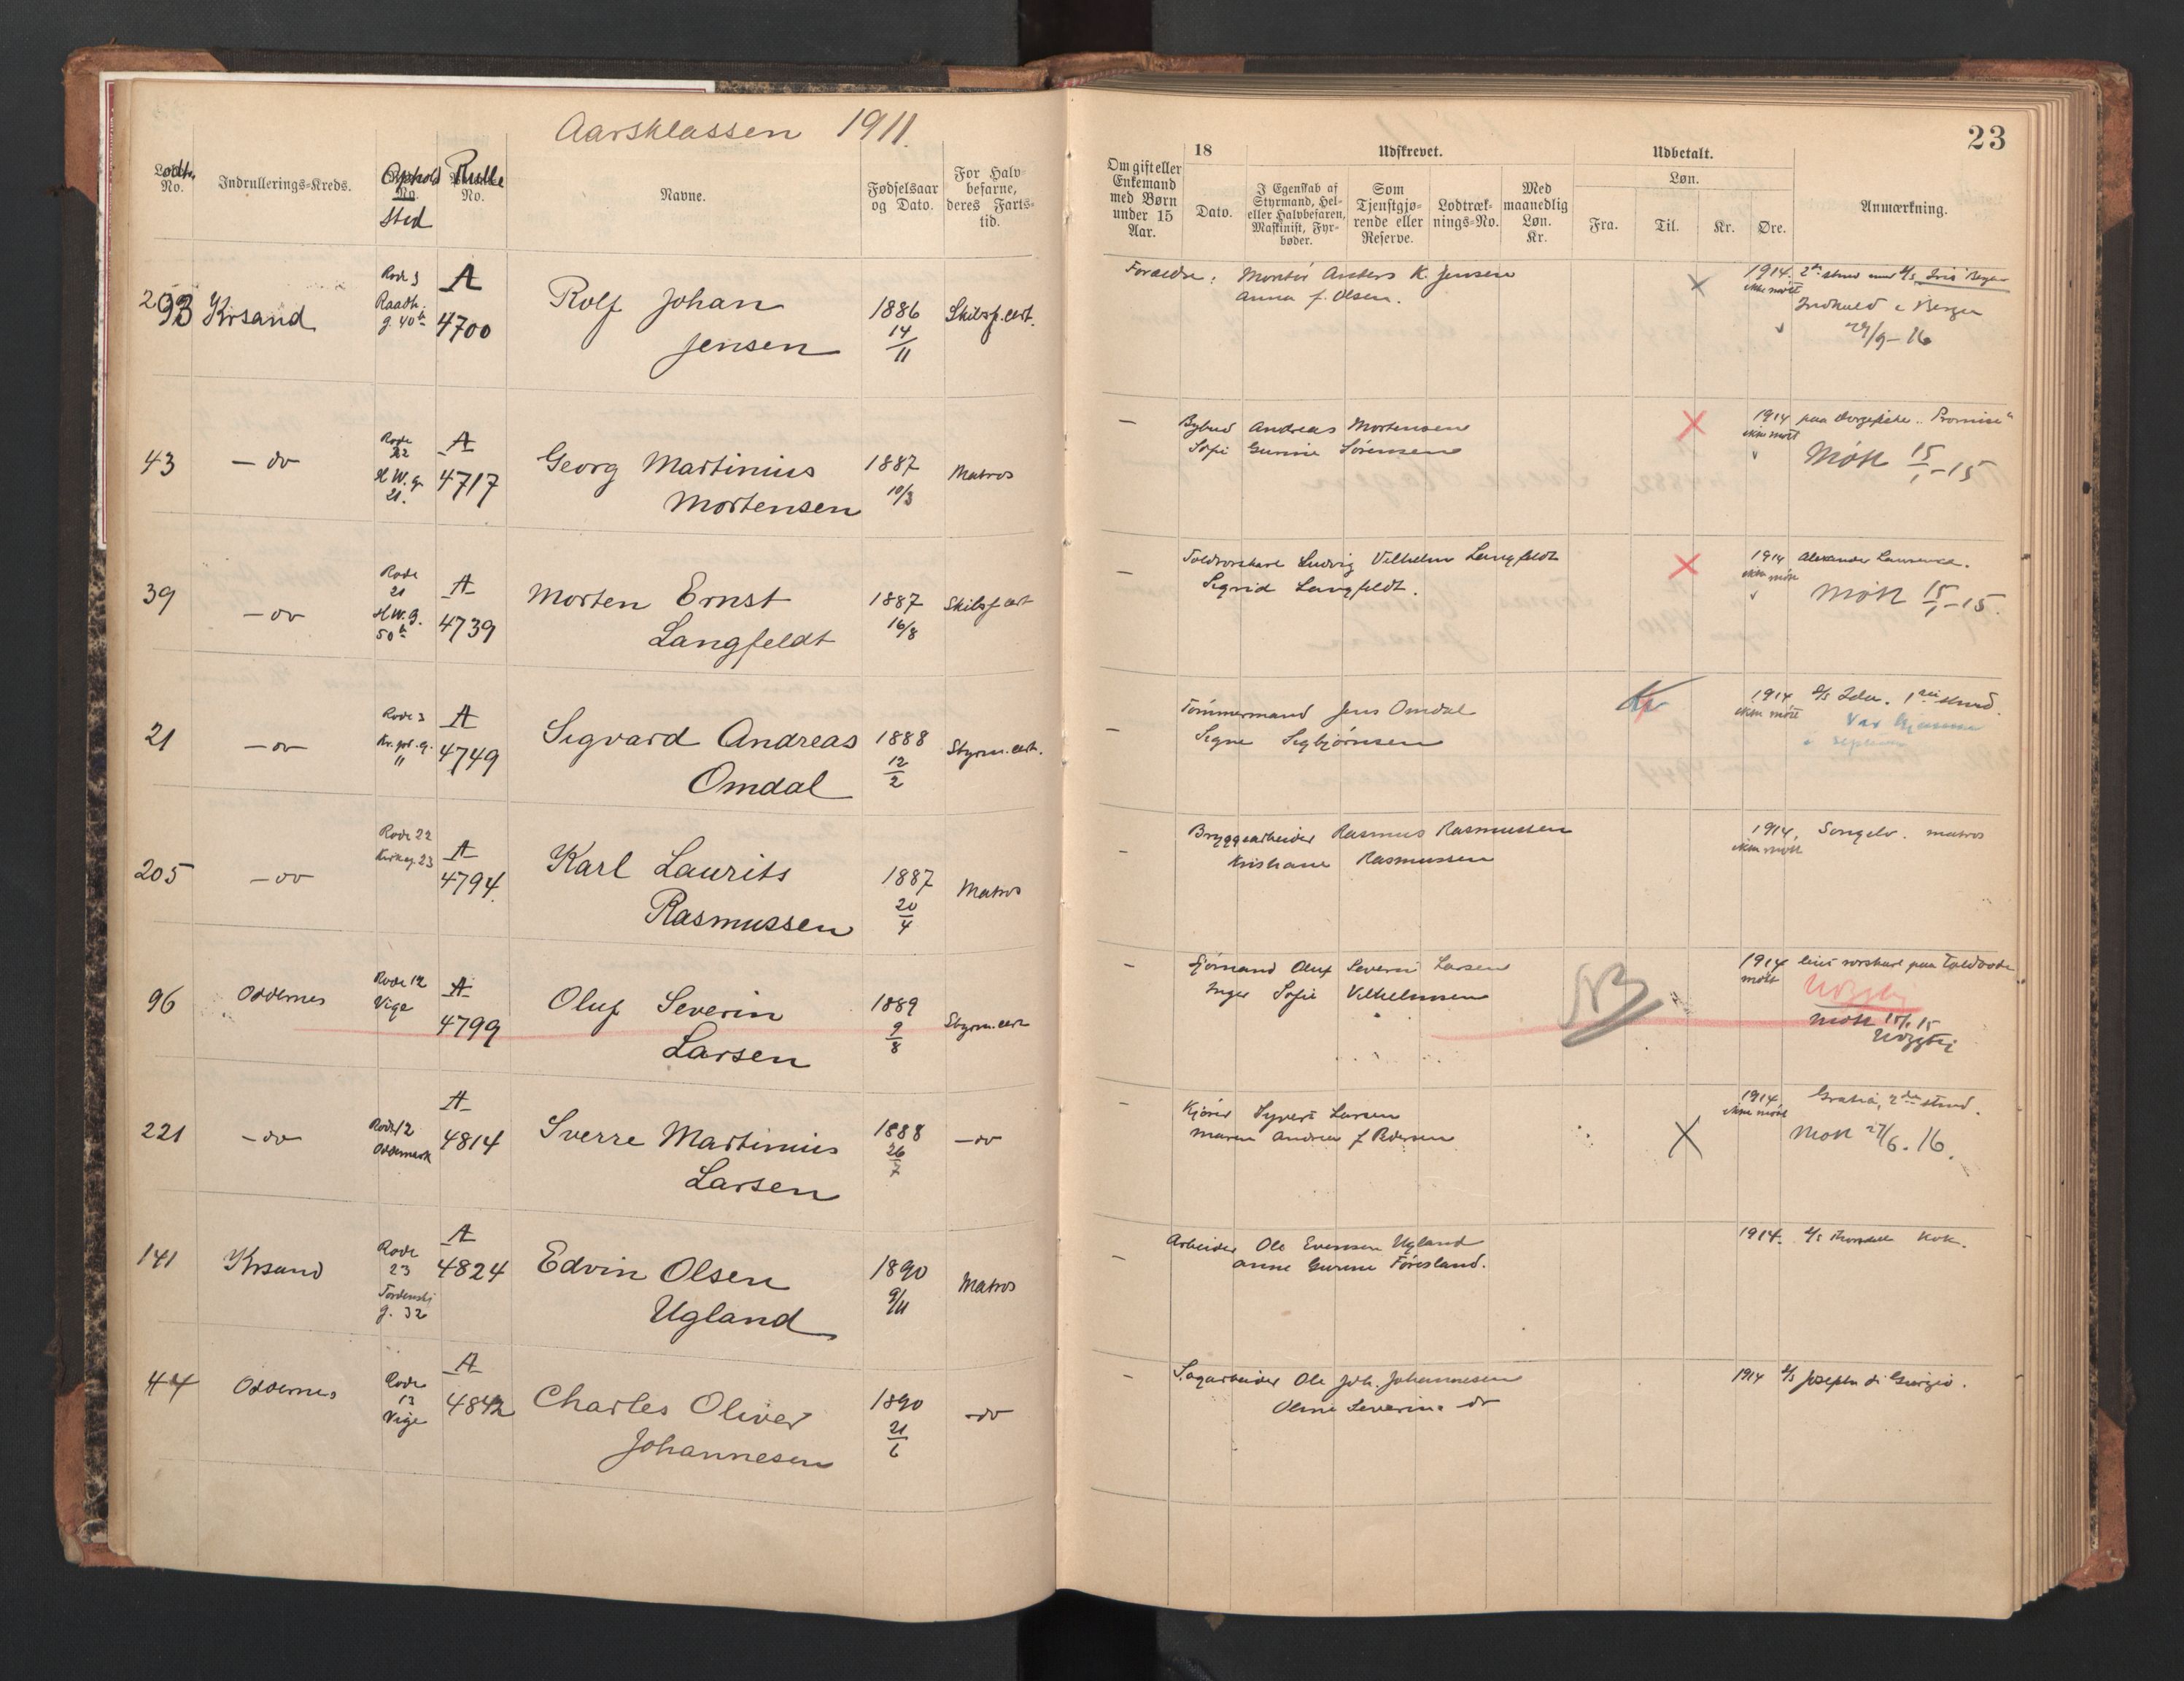 Aarsklassen 1911.
23
Lodtr. No.
Indrullerings-Kreds.
Ophold Sted
Rulle No.
Navne.
Fødselsaar og Dato.
For Halvbefarne, deres Fartstid.
Om gift eller Enkemand med Børn under 15 Aar.
18
Dato.
Udskrevet.
I Egenskab af Styrmand, Hel- eller Halvbefaren, Maskinist, Fyrbøder.
Som Tjenstgjørende eller Reserve.
Lodtræknings-No.
Med maanedlig Løn. Kr.
Udbetalt.
Løn.
Fra.
Til.
Kr.
Øre.
Anmærkning.
293 Krsand
Rode 3
Raadh.
g. 40 b
A
4700
Rolf Johan
Jensen
1886
14
11
Skibsf. cert.
Forældre: Montør Anders K. Jensen
Anna f. Olsen.
1914. 2den stmd
ikke mött
Indkald i Bergen
29/9-16
43 - do
Rode
22
H W. g.
21.
A
4717
Georg Martinius
Mortensen
1887
10/3
Matros
Bybud Andreas Mortensen
Sofi Gurine Sørensen
1914 paa "Promise"
ikke mött
Mött 15/1-15
39 - do
Rode
21
H.W.g.
50 b
A
4739
Morten Ernst
Langfeldt
1887
16/8
Skibsf cert
Toldrorskarl Ludvig Vilhelm Langfeldt
Sigrid Langfeldt.
1914 Alexander Lawrence.
ikke mött
Mött 15/1-15.
21 - do
Rode 3
Kr. pr. g.
11
A
4749
Sigvard Andreas
Omdal
1888
12
2
Styrm. cert.
Tömmermand Jens Omdal
Signe Sigbjörnsen
1914 1ste stmd.
ikke mött
Var hjemme
i septem
205 - do
Rode 22
Kirkeg. 23
A
4794.
Karl Laurits
Rasmussen
1887
20
4
Matros
Bryggearbeider Rasmus Rasmussen
Kristiane Rasmussen
1914. Songelv. matros
ikke mött
96 Oddernes
Rode 12
Vige
A
4799
Oluf Severin
Larsen
1889
9
8
Styrm. cert
Sjömand Oluf Severin Larsen
Inger Sofie Vilhelmsen
NB
1914
mött
mött 15/1 15
221 - do
Rode 12
A
4814
Sverre Martinius
Larsen
1888
26
7
- do
Kjörer Syvert Larsen
Maren Andrea f Pedersen
1914. Gratia, 2den stmd.
ikke mött
Mött 27/6. 16.
141 Krsand
Rode
23
Tordenskj
g. 32
A
4824
Edvin Olsen
Ugland
1890
9/11
Matros
Arbeider Ole Evensen Ugland
Anne Gurine Föresland.
1914. Kok.
44 Oddernes
Rode
13
Vige
A
4842
Charles Oliver
Johannesen
1890
21
6
- do
Sagarbeider Ole Joh. Johannesen
Oline Severine do
1914 S/S Joseph di Giorgio.